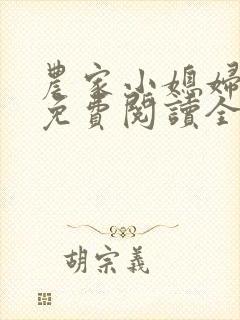 農家小媳婦
免費閱讀全
胡宗義